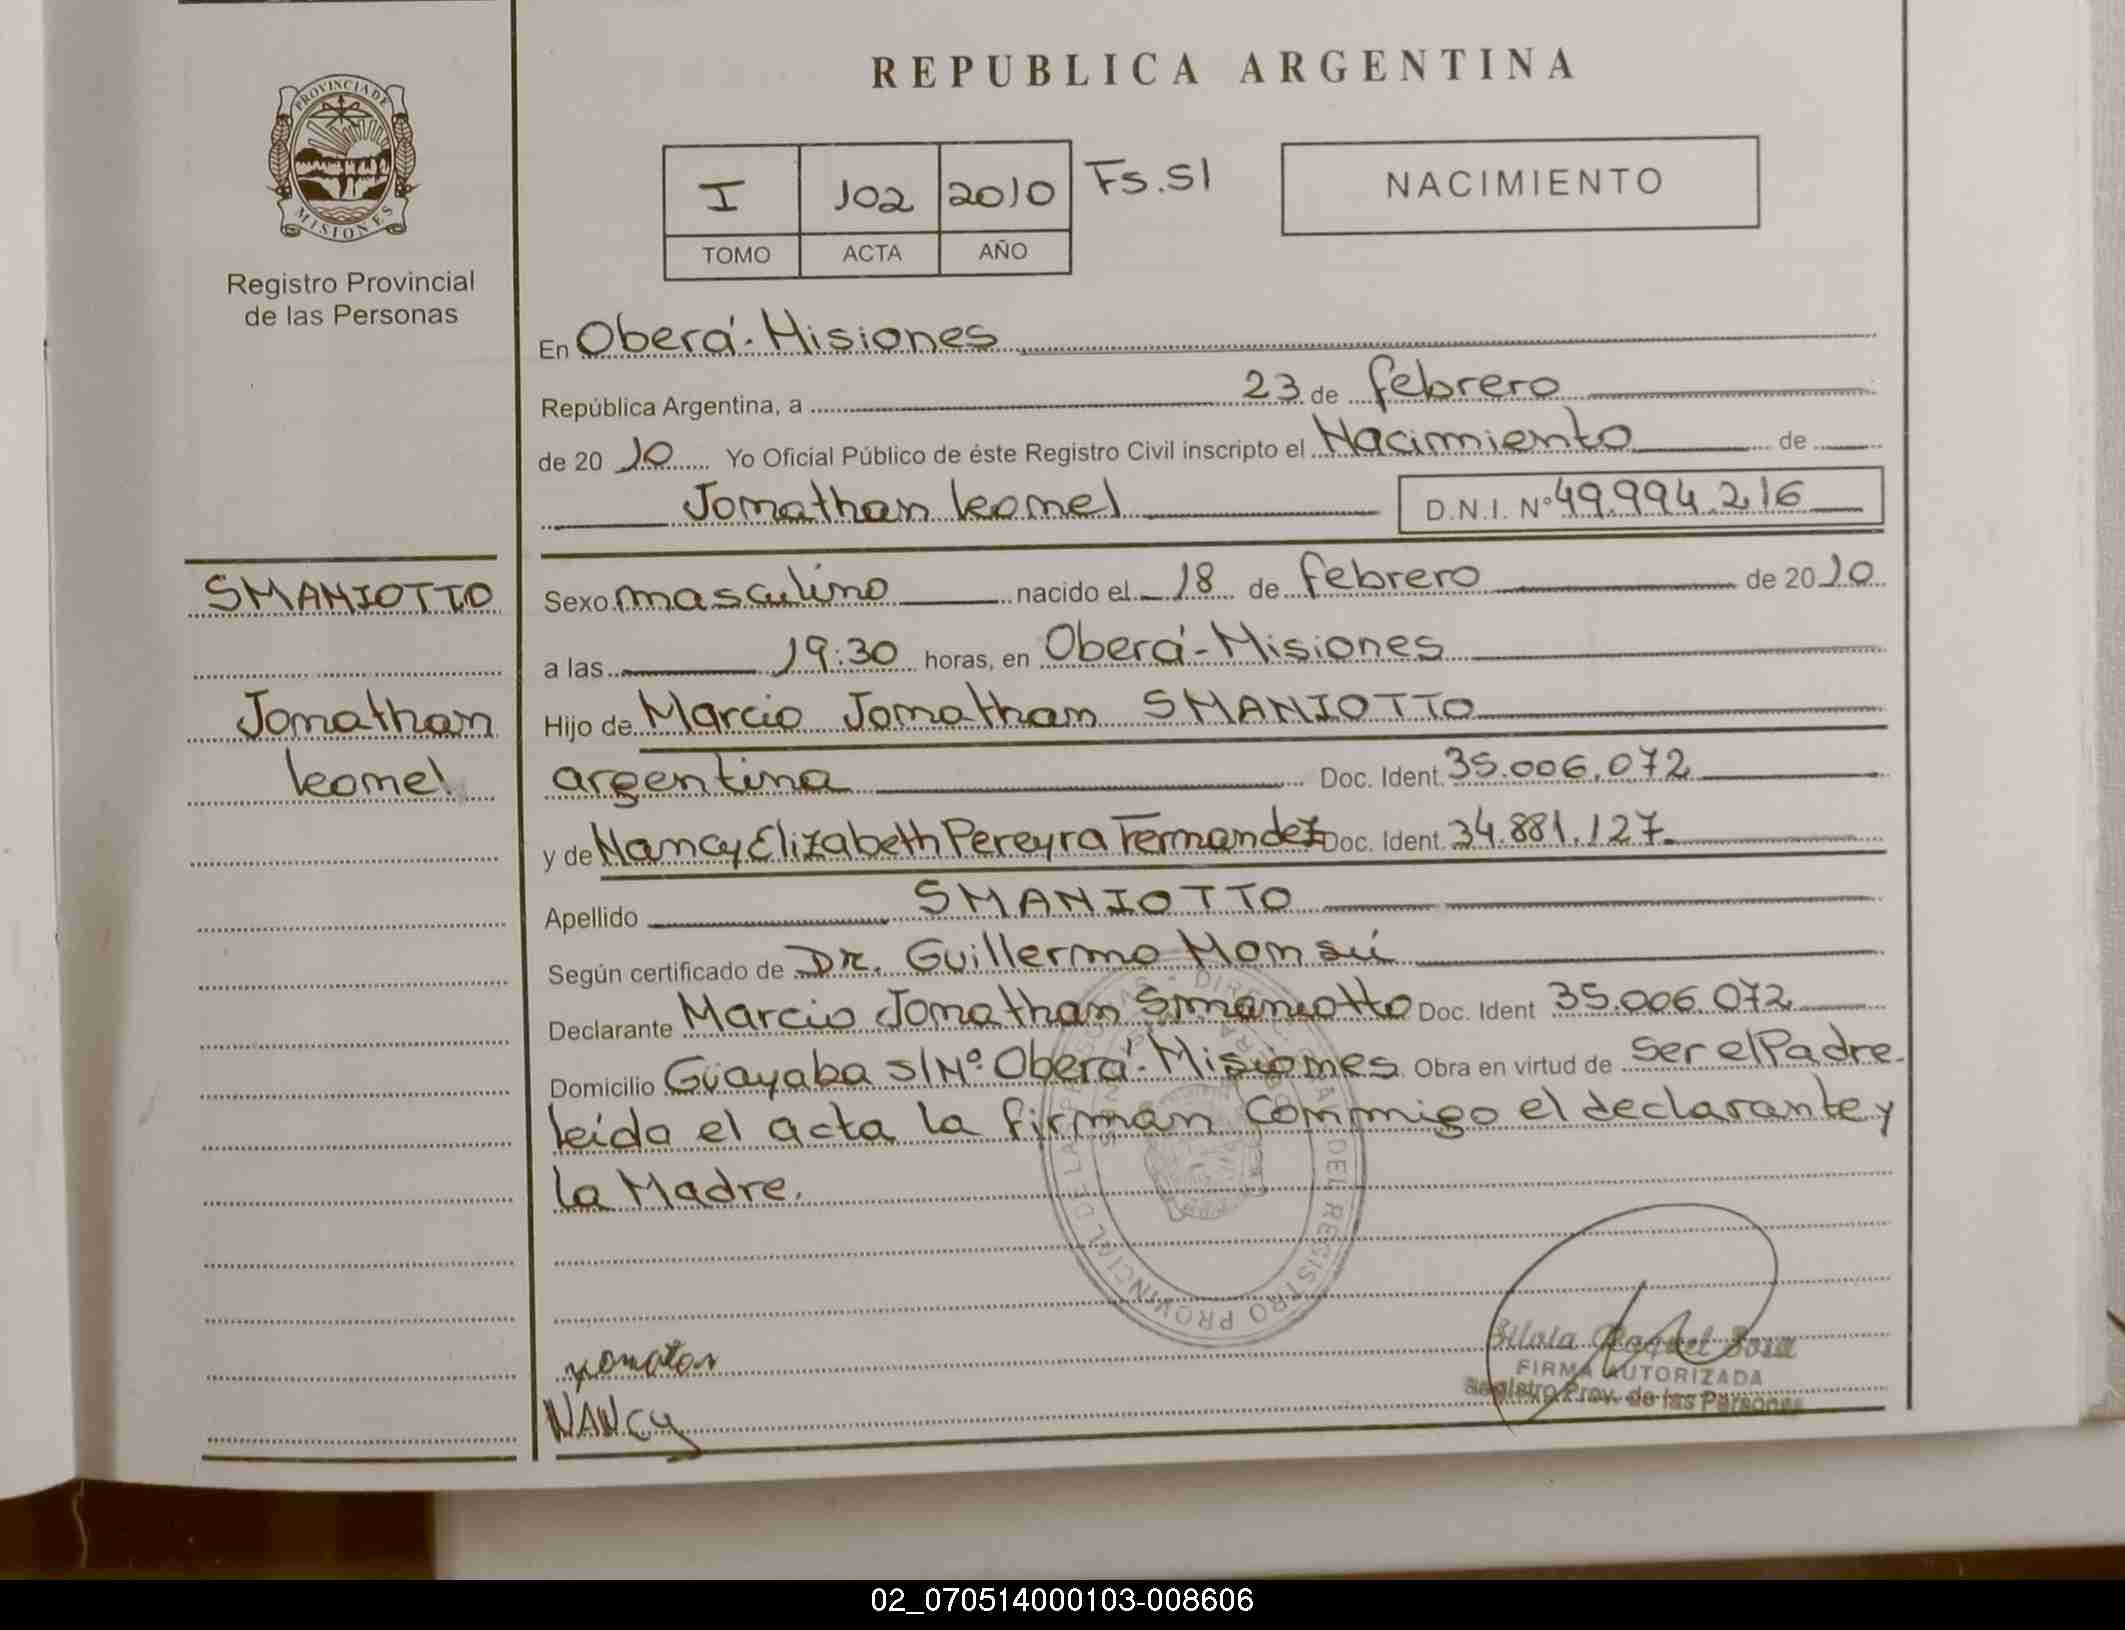 REPUBLICA ARGENTINA
PROVINCIA DE
MISIONES
Registro Provincial
de las Personas
I 102 2010 Fs.51
TOMO ACTA AÑO
NACIMIENTO
En Oberá-Misiones
República Argentina, a 23 de febrero
de 2010 Yo Oficial Público de éste Registro Civil inscripto el Nacimiento de
Jonathan leonel D.N.I. Nº 49.994.216
SMANIOTTO
Jonathan
leonel
Sexo masculino nacido el 18 de febrero de 2010
a las 19:30 horas, en Oberá-Misiones
Hijo de Marcio Jonathan SMANIOTTO
argentina Doc. Ident. 35.006.072
y de Nancy Elizabeth Pereyra Fernandez Doc. Ident. 34.881.127
Apellido SMANIOTTO
Según certificado de DR. Guillermo Monsú
Declarante Marcio Jonathan Smaniotto Doc. Ident 35.006.072
Domicilio Guayaba s/Nº Oberá-Misiones Obra en virtud de Ser el Padre.
leída el acta la firman conmigo el declarante y
la Madre.
REGISTRO PROVINCIAL DE LAS
NANCY
Silvia Raquel Sosa
FIRMA AUTORIZADA
Registro Prov. de las Personas
02_070514000103-008606